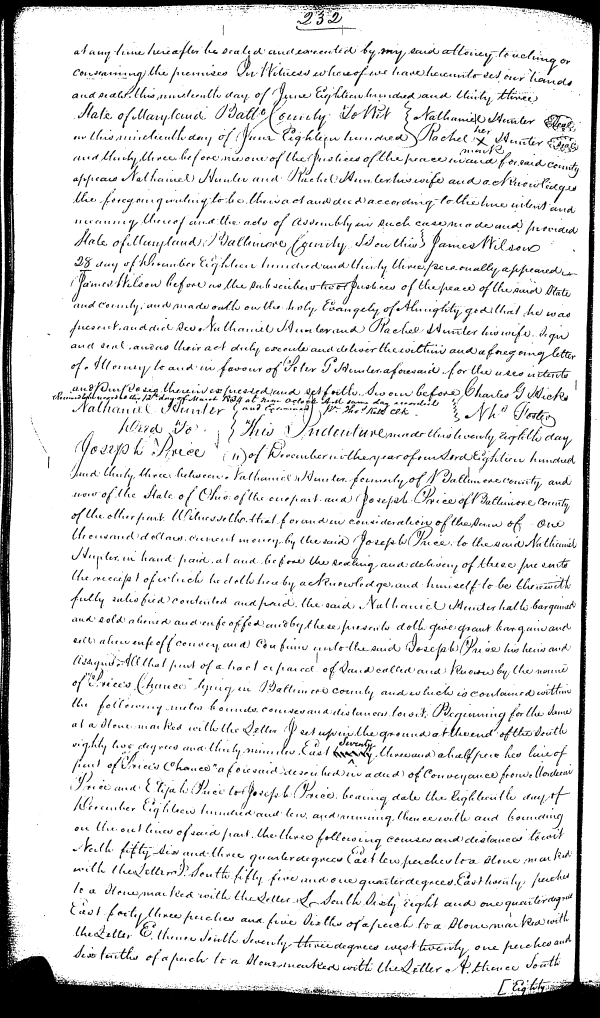 232
at any time hereafter be sealed and executed by my said attorney touching or
concerning the premises In Witness whereof we have hereunto set our hands
and seals this nineteenth day of June Eighteen hundred and thirty three
State of Maryland Balto County To Wit } Nathaniel Hunter Seal
on this nineteenth day of June Eighteen hundred } Rachel her X mark Hunter Seal
and thirty three before me one of the Justices of the peace in and for said county
appears Nathaniel Hunter and Rachel Hunter his wife and acknowledges
the foregoing writing to be their act and deed according to the true intent and
meaning thereof and the acts of Assembly in such case made and provided
State of Maryland Baltimore County Is on this } James Wilson
28 day of December Eighteen hundred and thirty three personally appeared
James Wilson before us the subscribers two Justices of the peace of the said State
and county and made oath on the holy Evangely of Almighty god that he was
present and did see Nathaniel Hunter and Rachel Hunter his wife sign
and seal and as their act duly execute and deliver the within and aforegoing letter
of Attorney to and in favour of Peter G Hunter aforesaid for the uses intents
and Purposes therein expressed and set forth. Sworn before Charles G Hicks
at nine Oclock and same day recorded
Nathaniel Hunter } and Examined pr Thos Kell Clk } Nhs
Deed To } This Indenture made this twenty eighth day
Joseph Price (11) of December in the year of our Lord Eighteen hundred
and thirty three between Nathaniel Hunter formerly of Baltimore county and
now of the State of Ohio of the one part and Joseph Price of Baltimore county
of the other part Witnesseth that for and in consideration of the sum of One
thousand dollars current money by the said Joseph Price to the said Nathaniel
Hunter in hand paid at and before the sealing and delivery of these presents
the receipt of which he doth hereby acknowledge and himself to be therewith
fully satisfied contented and paid the said Nathaniel Hunter hath bargained
and sold aliened and enfeoffed and by these presents doth give grant bargain and
sell alien enfeoff convey and Confirm unto the said Joseph Price his heirs and
Assigns All that part of a tract or parcel of Land called and known by the name
of "Price's Chance" lying in Baltimore county and which is contained within
the following metes bounds courses and distances to wit Beginning for the same
at a Stone marked with the Letter I set up in the ground at the end of the South
eighty two degrees and thirty minutes East seventy three and a half perches line of
part of "Price's Chance" aforesaid described in a deed of Conveyance from Mordecai
Price and Elijah Price to Joseph Price bearing date the Eighteenth day of
December Eighteen hundred and ten, and running thence with and bounding
on the outlines of said part the three following courses and distances to wit
North fifty six and three quarter degrees East ten perches to a Stone marked
with the Letter P. South fifty five and one quarter degrees East twenty perches
to a Stone marked with the Letter L South Sixty eight and one quarter degrees
East forty three perches and five Sixths of a perch to a Stone marked with
the Letter E thence South Seventy three degrees west twenty one perches and
Six tenths of a perch to a Stone marked with the Letter A. thence South
[Eighty